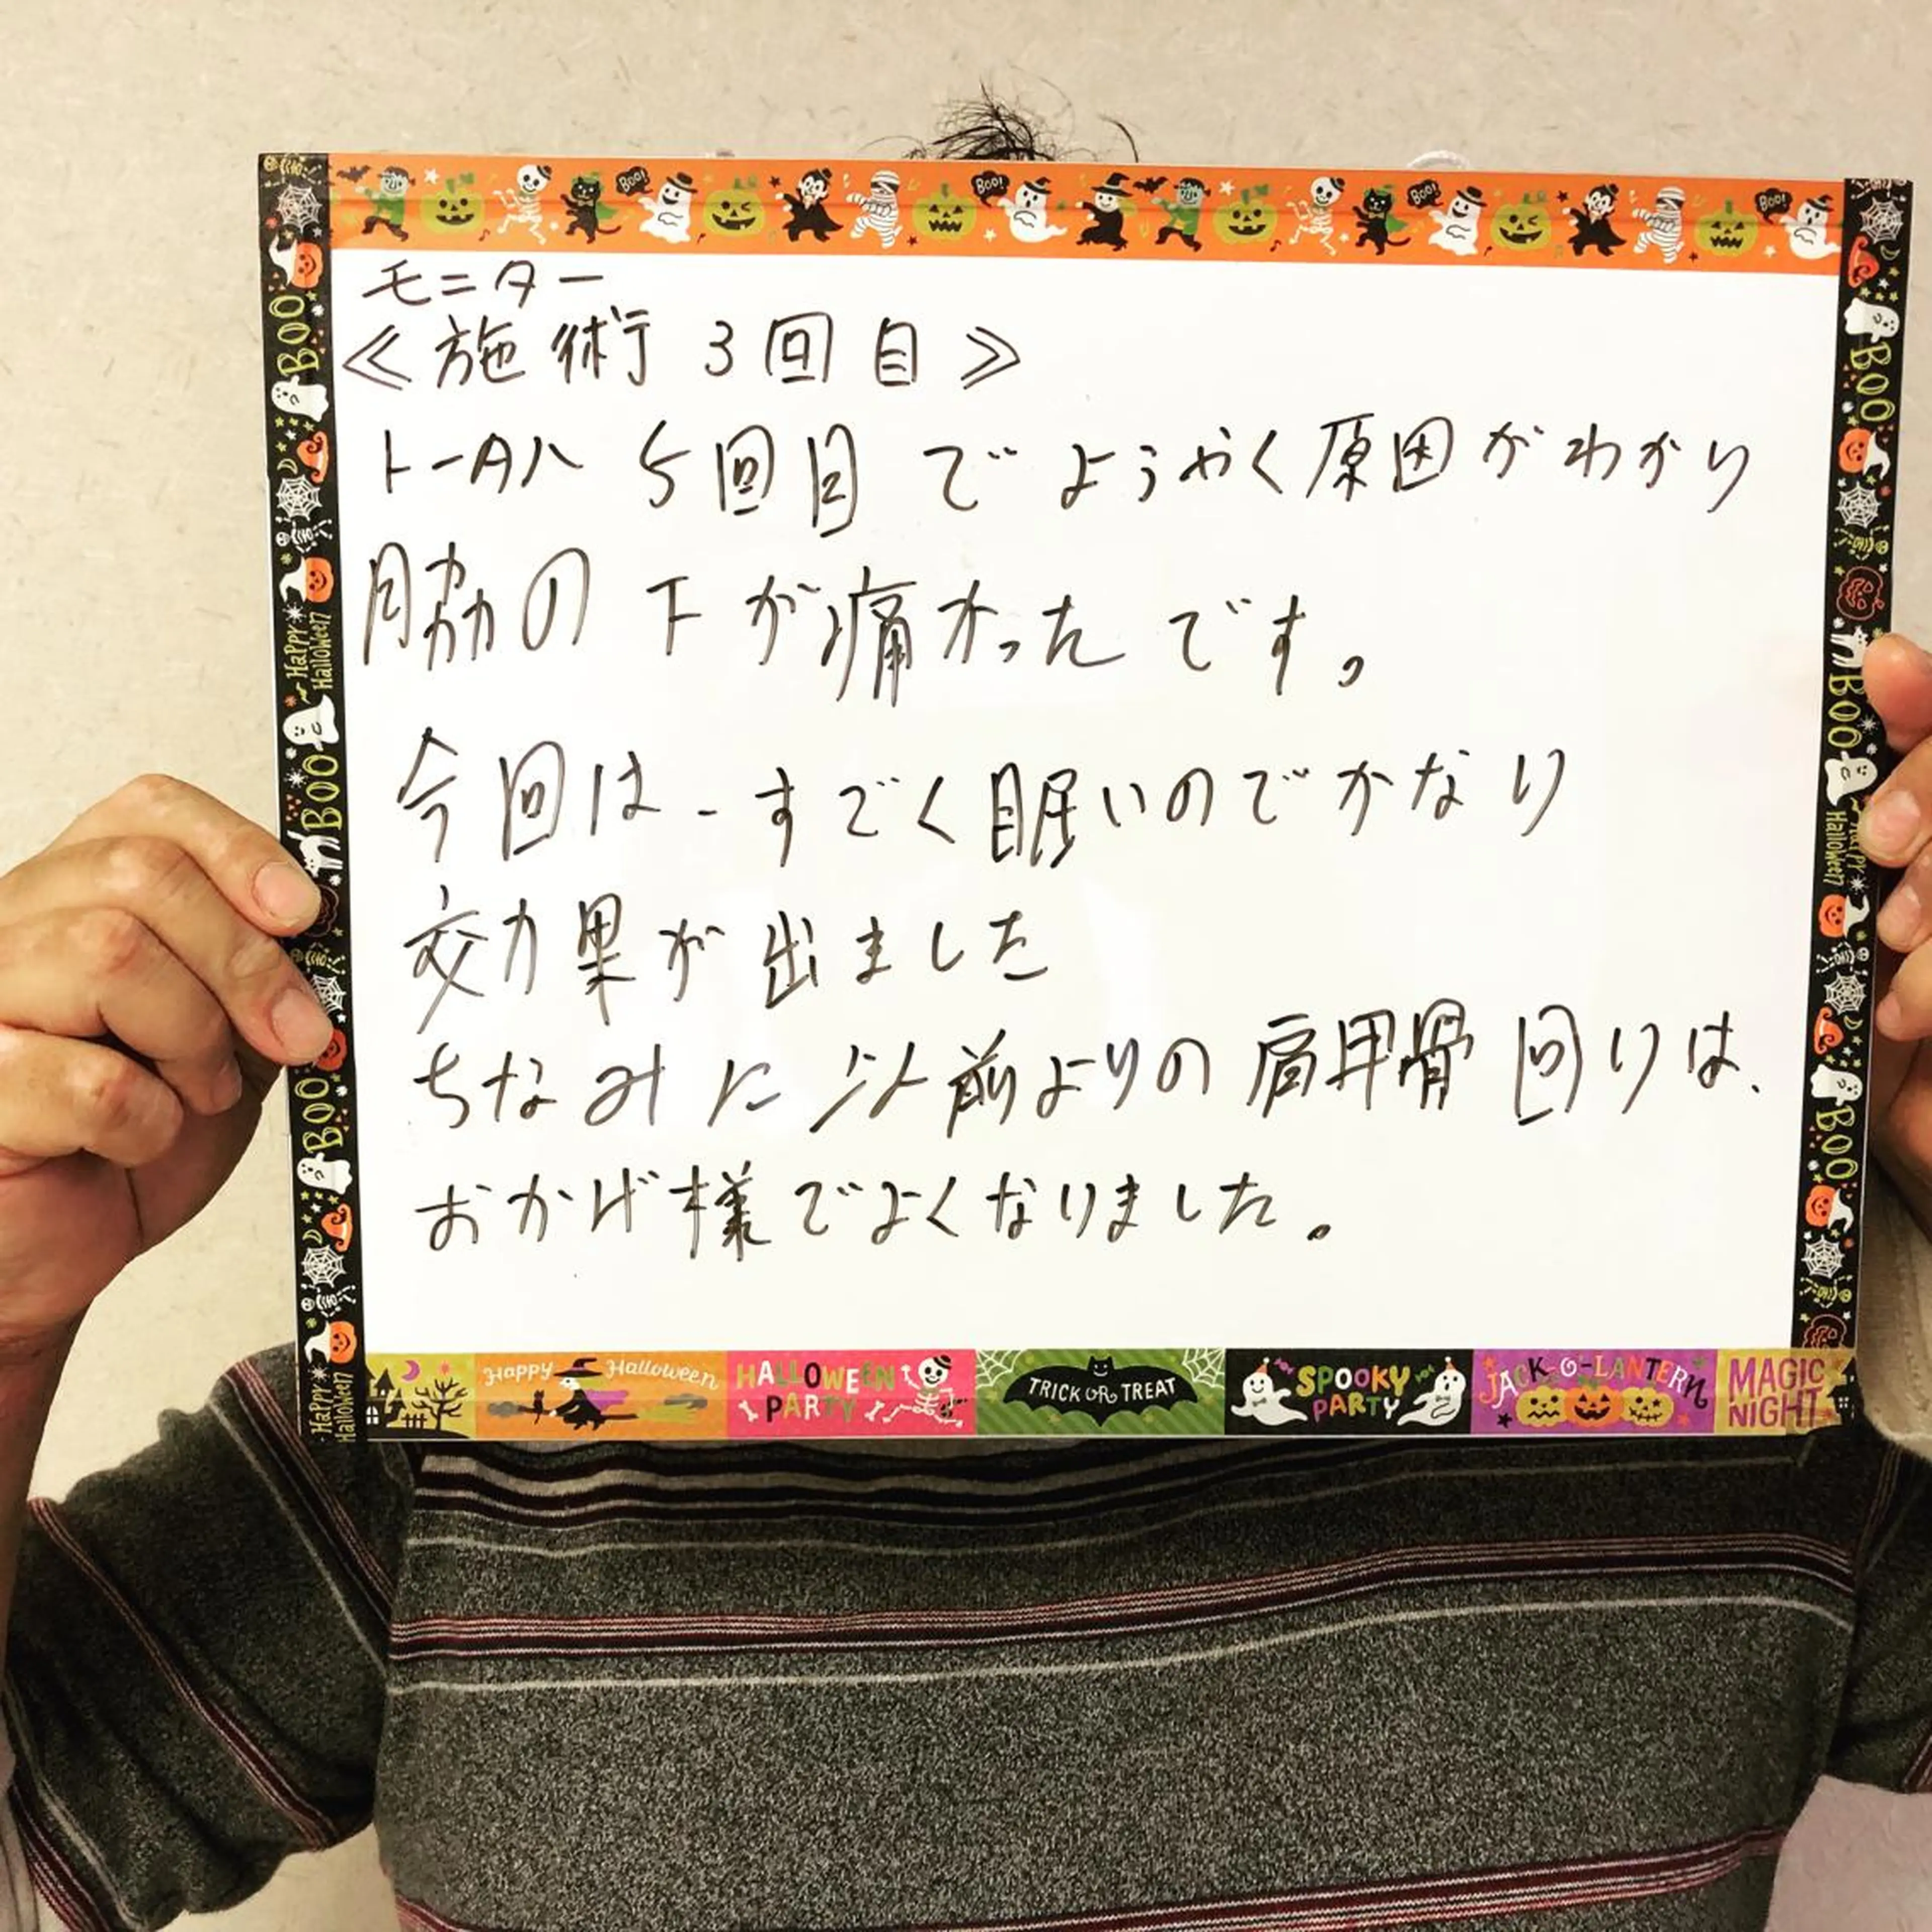 BOO!
BOO!
BOO!
BOO!
モニター
≪施術 3回目≫
トータル 5回目 でようやく原因がわかり
脇の下が痛かったです。
今回は、すごく眠いのでかなり
効果が出ました
ちなみに以前よりの肩甲骨回りは、
おかげ様でよくなりました。
BOO
Happy Halloween
BOO
BOO
Happy Halloween
BOO
BOO
Happy Halloween
BOO
Happy Halloween
HALLOWEEN PARTY
TRICK OR TREAT
SPOOKY PARTY
JACK-O'-LANTERN
MAGIC NIGHT